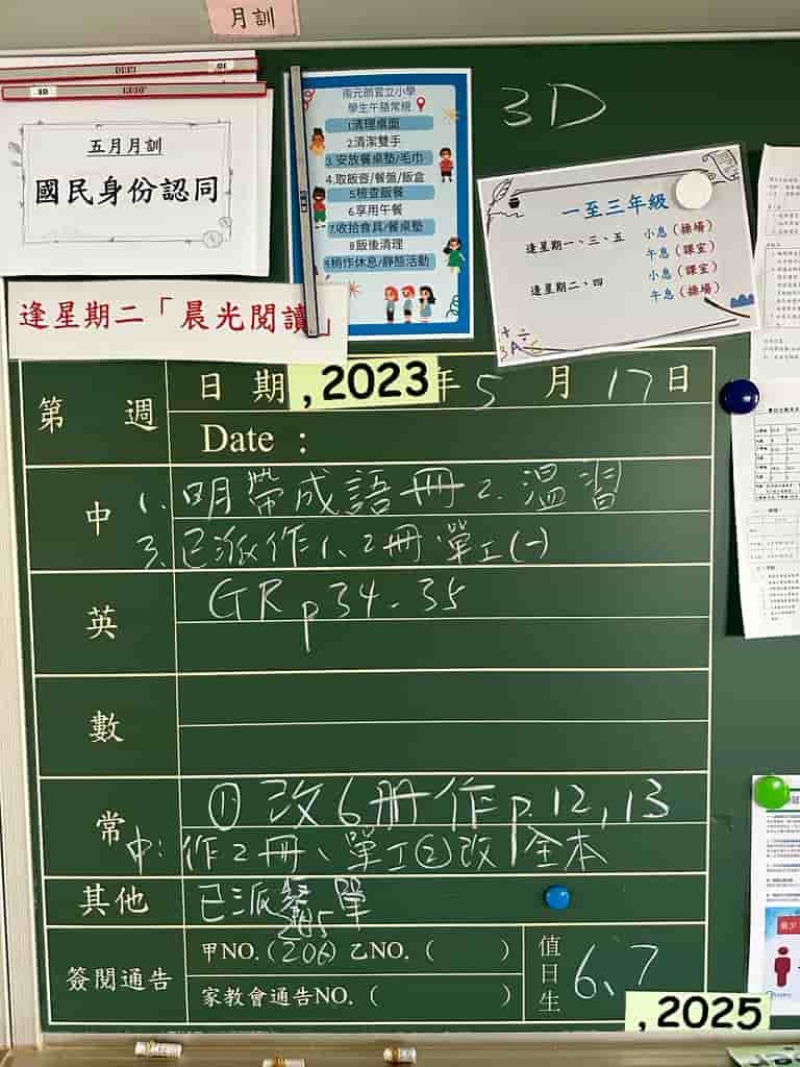 月訓
五月月訓
國民身份認同
逢星期二「晨光閱讀」
學生午膳常規
1清理桌面
2清潔雙手
3.安放餐桌墊/毛巾
4.取飯壺/餐盤/飯盒
5檢查飯餐
6.享用午餐
7.收拾食具/餐桌墊
8飯後清理
9.稍作休息/靜態活動
3D
一至三年級
逢星期一、三、五
小息(操場)
午息(課室)
逢星期二、四
小息(課室)
午息(操場)
第 週
日期 , 2023 年 5 月 17 日
Date :
中 1. 明帶成語冊 2. 溫習
3. 已派作1、2冊、單工(一)
英 GR p34-35
數
常 ① 改6冊作p.12,13
中: 作2冊、單工②改 全本
其他 已派餐單
簽閱通告 甲NO.(206) 乙NO.( )
205
家教會通告NO.( )
值日生 6、7
, 2025